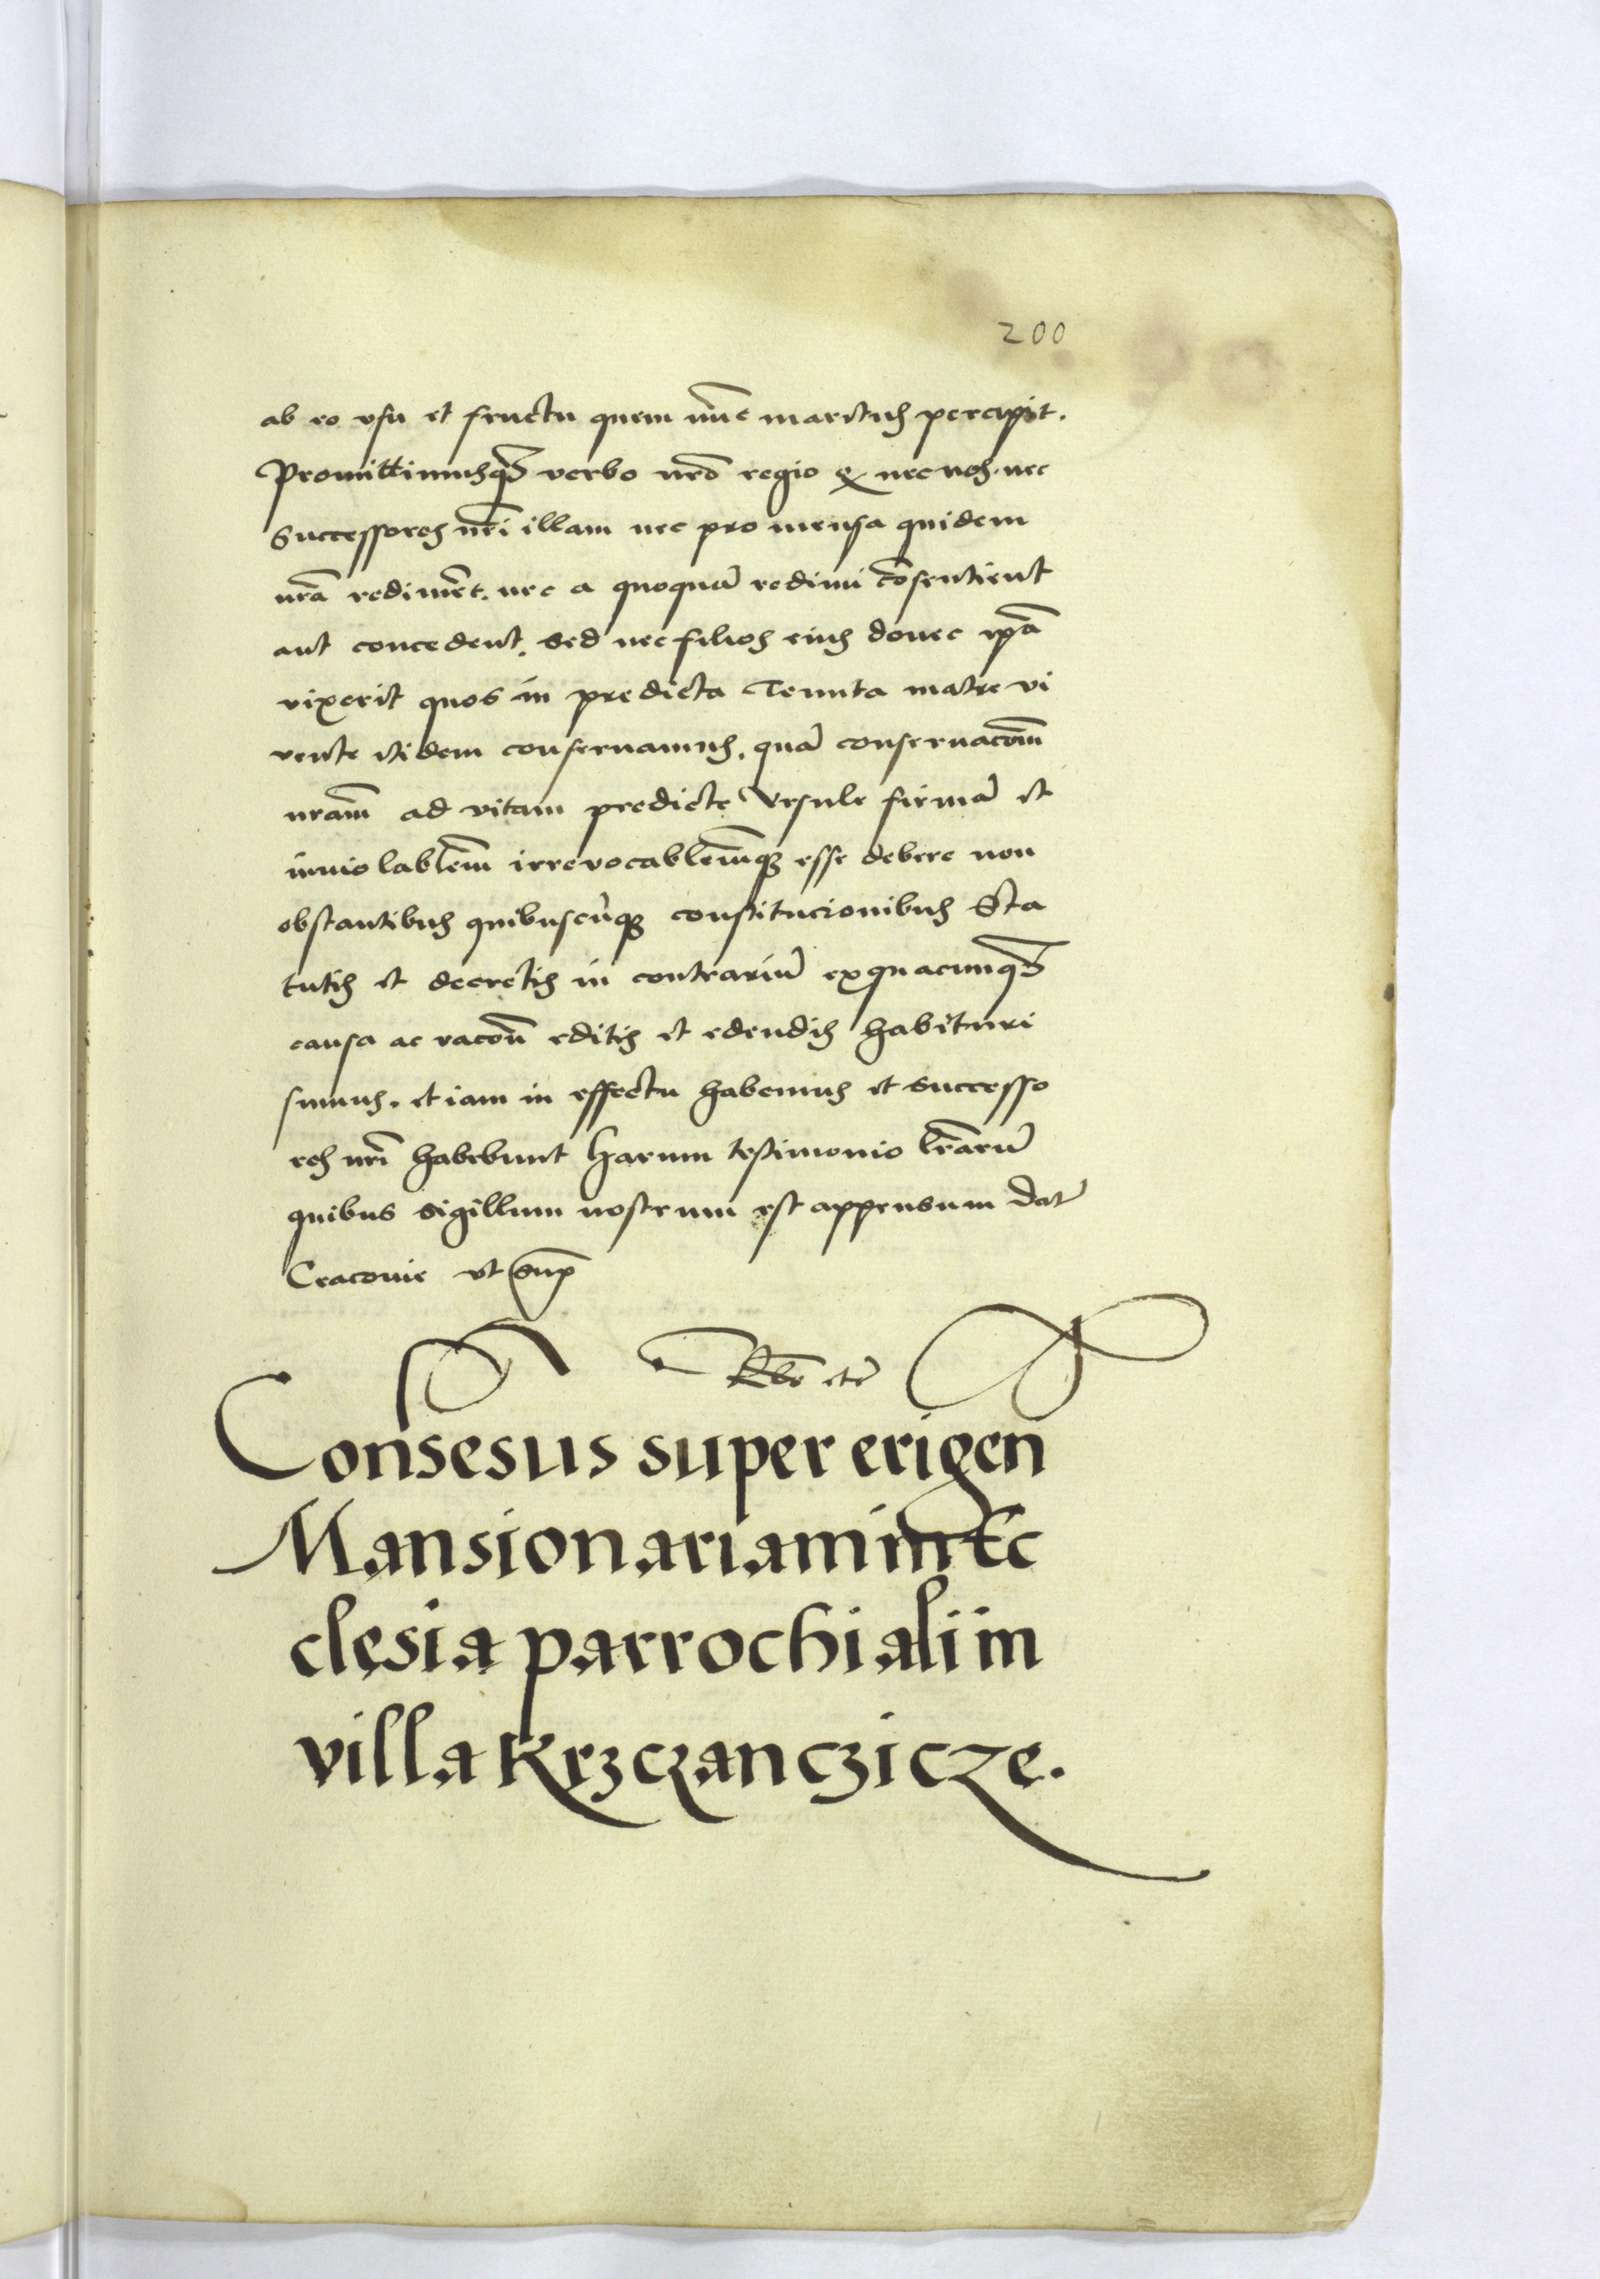 200
ab eo vsu et fructu quem nūc maritus percipit.
Promittimusq₃ verbo nr̄o regio q nec nos nec
Successores nr̄i illam nec pro mensa quidem
nr̄a rediment. nec a quoquā redimi cōsentient
aut concedent. sed nec filios eius donec ip̄a
vixerit quos in predicta Tenuta matre vi
vente itidem conseruamus. quā conseruacōm
nram̄ ad vitam predicte Vrsule firmā et
inuiolablem̄ irreuocablem̄q₃ esse debere non
obstantibus quibuscūq₃ constitucionibus Sta
tutis et decretis in contrariū ex quacunq₃
causa ac racōn editis et edendis habituri
sumus. et iam in effectu habemus et successo
res nr̄i habebunt harum testimonio l̄rarū
quibus sigillum nostrum est appensum dat̄
Cracouie vt sup̄
Consesus super erigen
Mansionariam in Ec
clesia parrochiali in
villa Krzczanczicze.